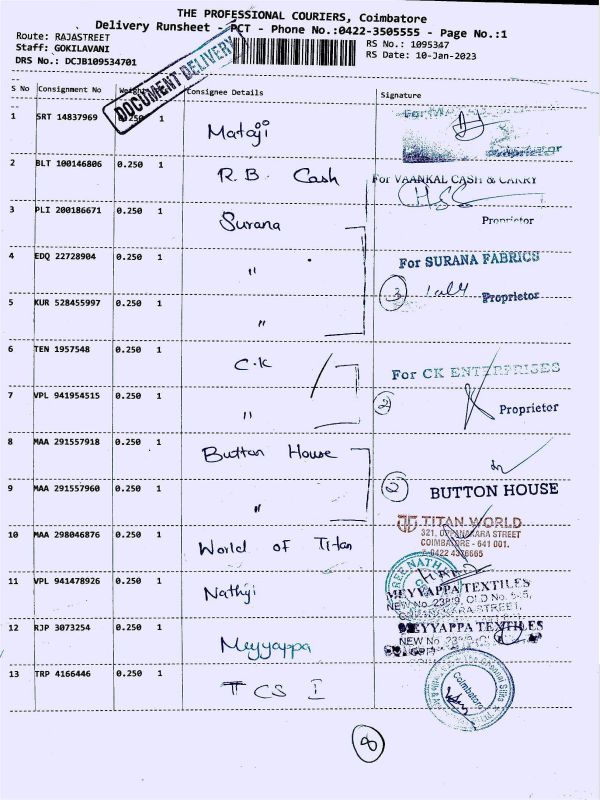 THE PROFESSIONAL COURIERS, Coimbatore
Delivery Runsheet - PCT - Phone No.:0422-3505555 - Page No.:1
Route: RAJASTREET
RS No.: 1095347
Staff: GOKILAVANI
RS Date: 10-Jan-2023
DRS No.: DCJB109534701
DOCUMENT DELIVERY
S No Consignment No Weight Consignee Details Signature
1 SRT 14837969 0.250 1 Mataji
2 BLT 100146806 0.250 1 R.B. Cash For VAANKAL CASH & CARRY
Proprietor
3 PLI 200186671 0.250 1 Surana
4 EDQ 22728904 0.250 1 " For SURANA FABRICS
5 KUR 528455997 0.250 1 " 3 Proprietor
6 TEN 1957548 0.250 1 C.K For CK ENTERPRISES
7 VPL 941954515 0.250 1 " 2 Proprietor
8 MAA 291557918 0.250 1 Button House
9 MAA 291557960 0.250 1 " 2 BUTTON HOUSE
10 MAA 298046876 0.250 1 World of Titan TITAN WORLD
COIMBATORE - 641 001.
11 VPL 941478926 0.250 1 Nathji MEYYAPPA TEXTILES
12 RJP 3073254 0.250 1 Meyyappa MEYYAPPA TEXTILES
13 TRP 4166446 0.250 1 TCS I Coimbatore
8